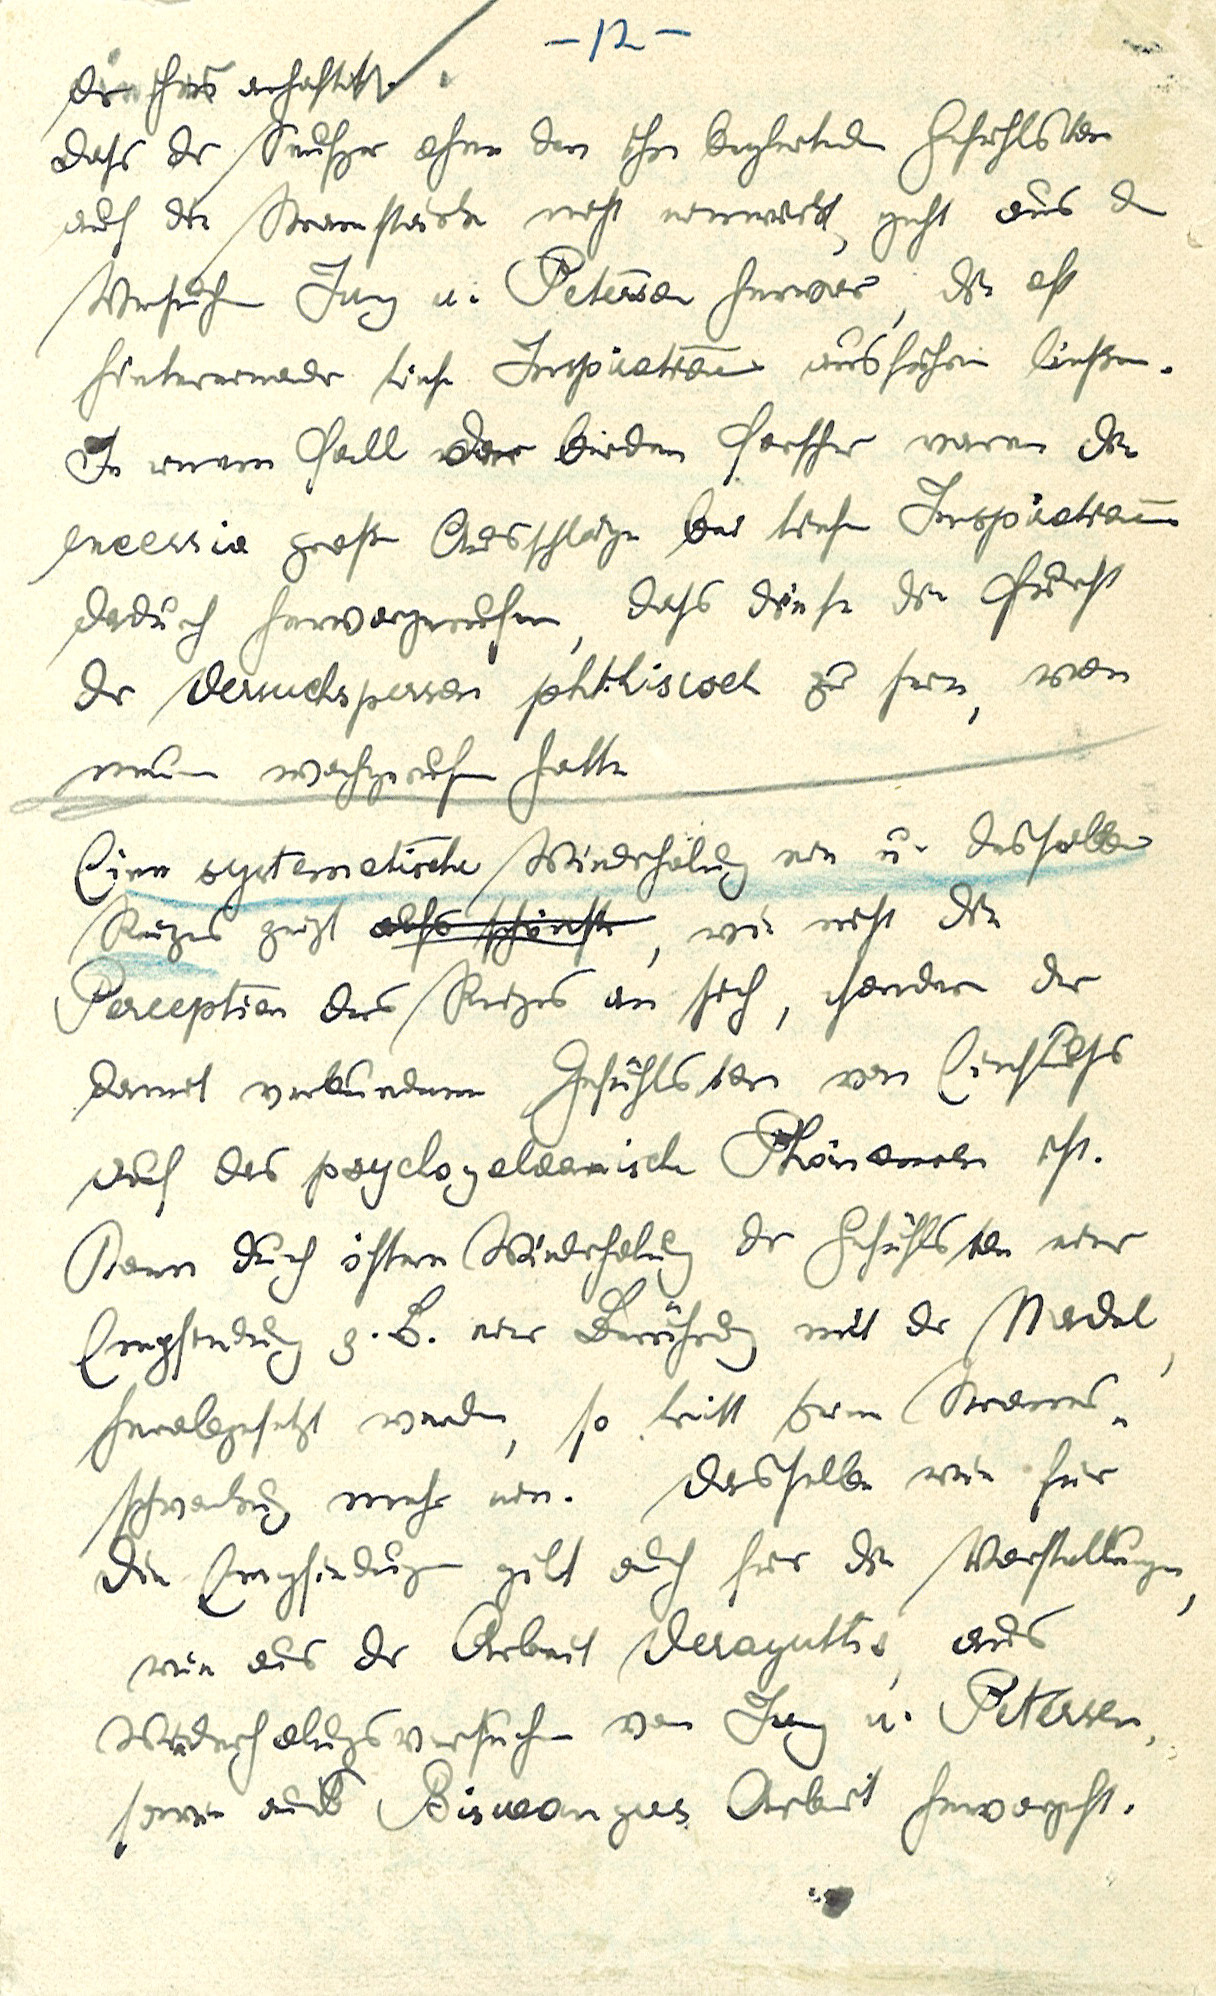 – 12 –
dass der Seufzer ohne den ihn begleitenden Gefühlston
auf die Stromstärke nicht einwirkt, geht aus d
Versuchen Jung u. Peterson hervor, die oft
hintereinander tiefe Inspirationen ausführen liessen.
In einem Fall der beiden Forscher waren die
grosse Ausschläge bei tiefen Inspirationen
dadurch hervorgerufen, dass diese die Furcht
der Versuchsperson phthisisch zu sein, von
neuem wachgerufen hatte
Eine systematische Wiederholung ein u. desselben
Reizes zeigt, wie nicht die
Perception des Reizes an sich, sondern der
damit verbundene Gefühlston von Einfluss
auf das psychogalvanische Phänomen ist.
Kann durch öftere Wiederholung der Gefühlston einer
Empfindung z. B. einer Berührung mit der Nadel,
herabgesetzt werden, so tritt keine Stromes-
schwankung mehr ein. Dasselbe wie für
die Empfindungen gilt auch für die Vorstellungen,
wie aus der Arbeit Veraguths, aus
Wiederholungsversuchen von Jung u. Peterson,
sowie aus Binswangers Arbeit hervorgeht.